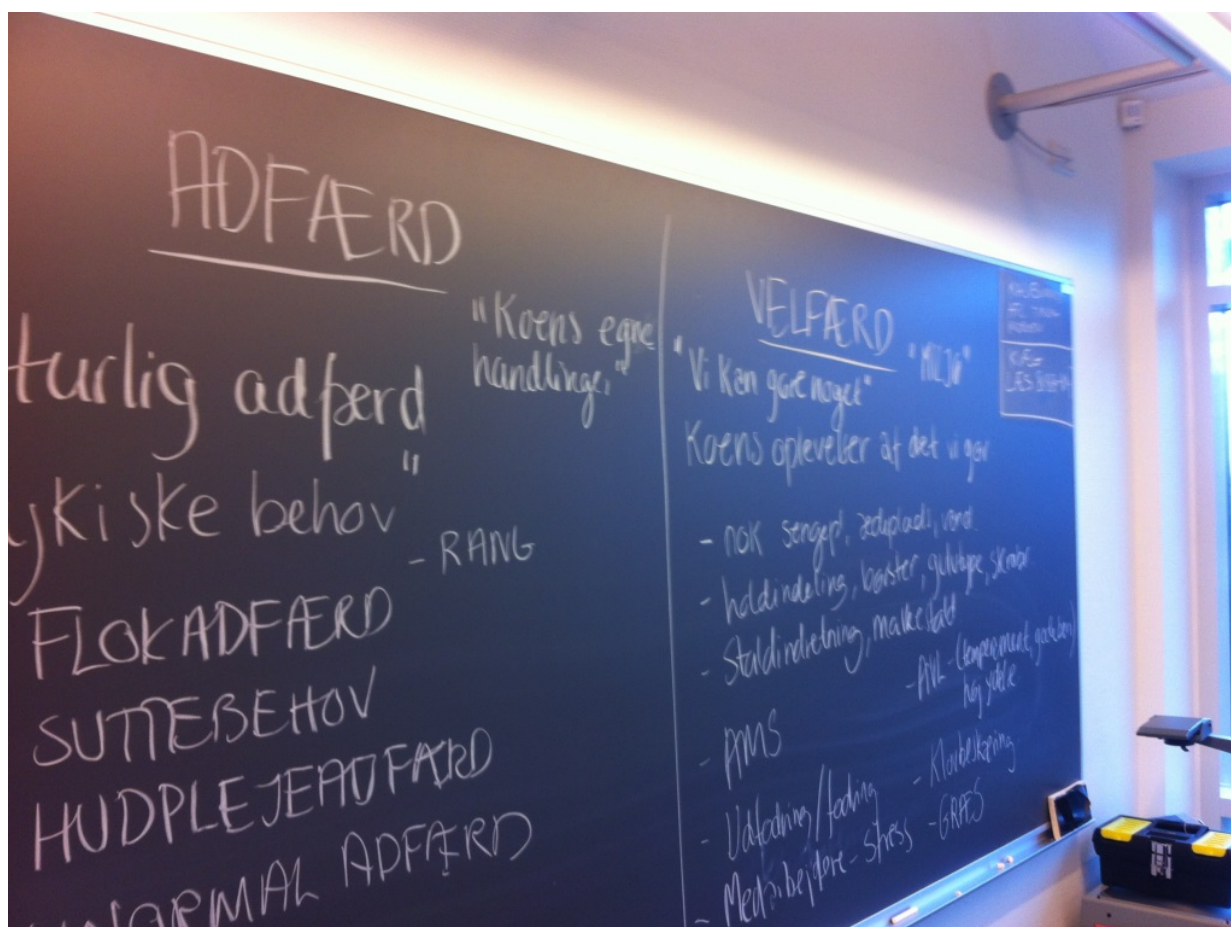 ADFÆRD
"Koens egne
handlinger"
turlig adfærd
ykiske behov"
- RANG
FLOKADFÆRD
SUTTEBEHOV
HUDPLEJEADFÆRD
NORMAL ADFÆRD
VELFÆRD
"Vi kan gøre noget" "MILJØ"
Koens oplevelser af det vi gør
- nok sengepl, ædeplads, vand
- holdindeling, børster, gulvtype, skraber
- Staldindretning, malkestald
- AVL - (temperement, gode ben)
høj ydelse
- AMS
- Klovbeskæring
- Udfodring/fodring
- Medarbejdere - stress - GRÆS